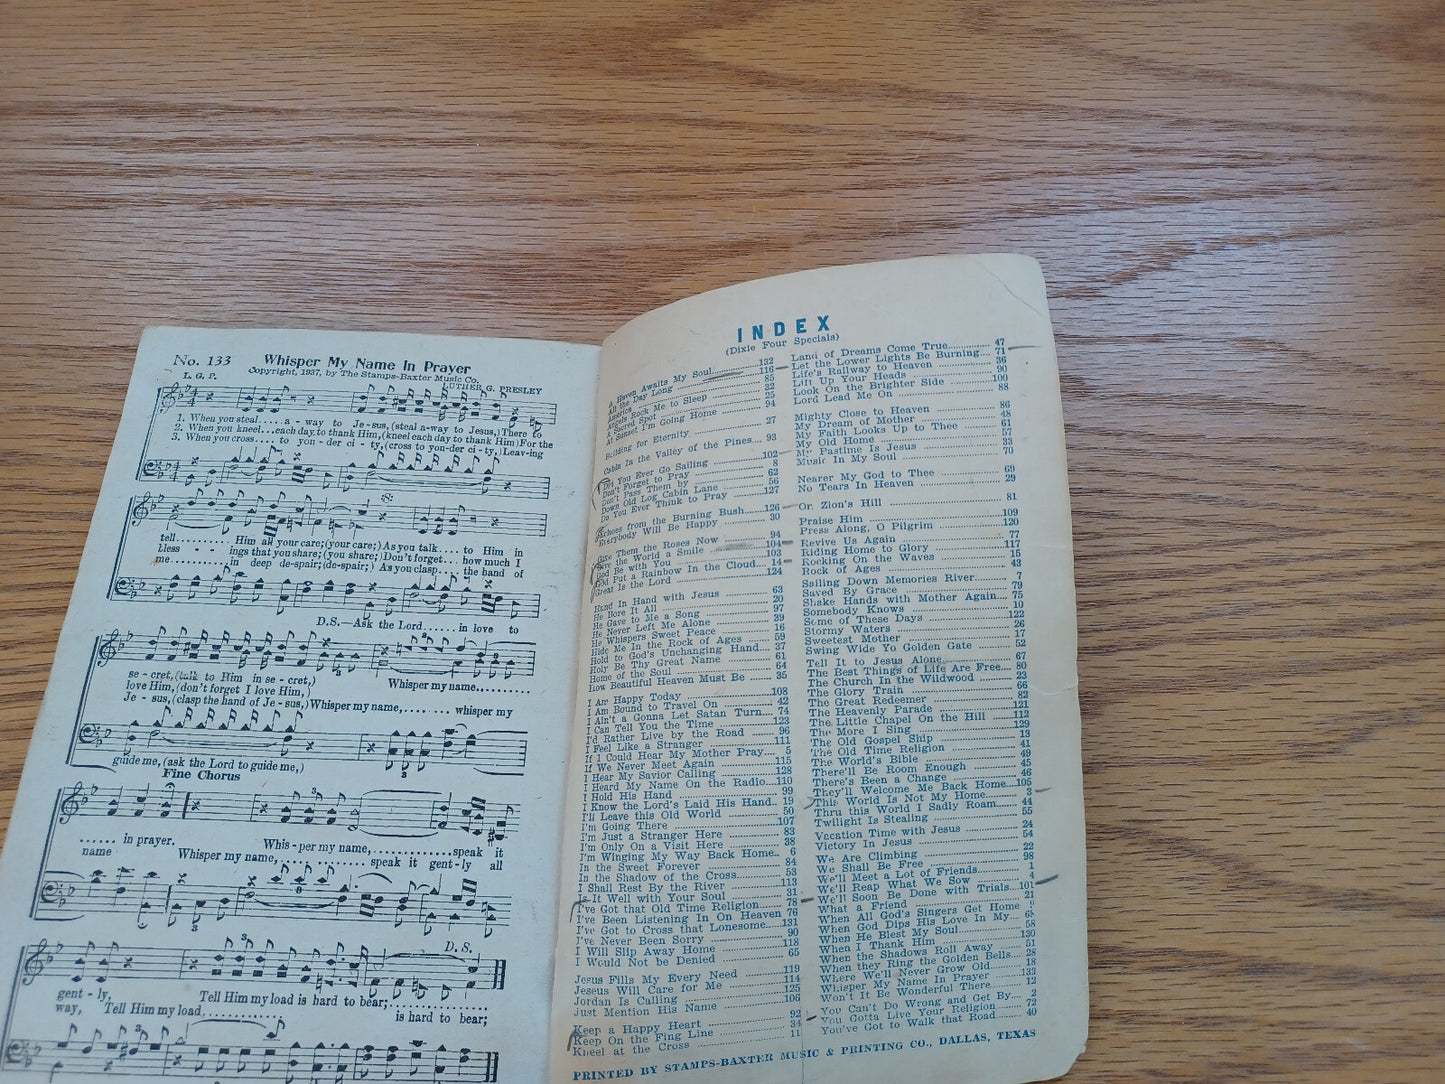 No. 133 Whisper My Name In Prayer
Copyright, 1937, by The Stamps-Baxter Music Co.
L. G. P. LUTHER G. PRESLEY
1. When you steal.... a - way to Je-sus, (steal a-way to Jesus,) There to
2. When you kneel...each day to thank Him, (kneel each day to thank Him) For the
3. When you cross.... to yon-der ci - ty, (cross to yon-der ci-ty,) Leav-ing
tell............ Him all your care; (your care;) As you talk.... to Him in
bless - - ings that you share; (you share;) Don't forget... how much I
me............ in deep de-spair; (de-spair;) As you clasp.... the hand of
D.S.—Ask the Lord...... in love to
se - cret, (talk to Him in se - cret,)
love Him, (don't forget I love Him,) Whisper my name,..........
Je - sus, (clasp the hand of Je-sus,) Whisper my name,........ whisper my
guide me, (ask the Lord to guide me,)
Fine Chorus
...... in prayer. Whis-per my name,................speak it
name Whisper my name,................ speak it gent-ly all
D. S.
gent - ly, Tell Him my load is hard to bear;....................
way, Tell Him my load................ is hard to bear;
INDEX
(Dixie Four Specials)
A Haven Awaits My Soul 132
All the Day Long 116
America 85
Angels Rock Me to Sleep 32
A Sacred Spot 25
At Sunset I'm Going Home 94
Building for Eternity 27
Cabin In the Valley of the Pines 93
Did You Ever Go Sailing 102
Don't Forget to Pray 8
Don't Pass Them by 62
Down Old Log Cabin Lane 56
Do You Ever Think to Pray 127
Echoes from the Burning Bush 126
Everybody Will Be Happy 30
Give Them the Roses Now 94
Give the World a Smile 104
God Be with You 103
God Put a Rainbow In the Cloud 14
Great Is the Lord 124
Hand In Hand with Jesus 63
He Bore It All 20
He Gave to Me a Song 97
He Never Left Me Alone 39
He Whispers Sweet Peace 16
Hide Me In the Rock of Ages 59
Hold to God's Unchanging Hand 37
Holy Be Thy Great Name 61
Home of the Soul 64
How Beautiful Heaven Must Be 35
I Am Happy Today 108
I Am Bound to Travel On 42
I Ain't a Gonna Let Satan Turn 74
I Can Tell You the Time 123
I'd Rather Live by the Road 96
I Feel Like a Stranger 111
If I Could Hear My Mother Pray 5
If We Never Meet Again 115
I Hear My Savior Calling 128
I Heard My Name On the Radio 110
I Hold His Hand 99
I Know the Lord's Laid His Hand 19
I'll Leave this Old World 50
I'm Going There 107
I'm Just a Stranger Here 83
I'm Only On a Visit Here 38
I'm Winging My Way Back Home 6
In the Sweet Forever 84
In the Shadow of the Cross 53
I Shall Rest By the River 113
Is It Well with Your Soul 31
I've Got that Old Time Religion 78
I've Been Listening In On Heaven 76
I've Got to Cross that Lonesome 131
I've Never Been Sorry 90
I Will Slip Away Home 118
I Would Not be Denied 65
Jesus Fills My Every Need 119
Jeseus Will Care for Me 114
Jordan Is Calling 125
Just Mention His Name 106
Keep a Happy Heart 92
Keep On the Fing Line 34
Kneel at the Cross 11
Land of Dreams Come True 47
Let the Lower Lights Be Burning 71
Life's Railway to Heaven 36
Lift Up Your Heads 90
Look On the Brighter Side 100
Lord Lead Me On 88
Mighty Close to Heaven 86
My Dream of Mother 48
My Faith Looks Up to Thee 61
My Old Home 57
My Pastime Is Jesus 33
Music In My Soul 70
Nearer My God to Thee 69
No Tears In Heaven 29
On Zion's Hill 81
Praise Him 109
Press Along, O Pilgrim 120
Revive Us Again 77
Riding Home to Glory 117
Rocking On the Waves 15
Rock of Ages 43
Sailing Down Memories River 7
Saved By Grace 79
Shake Hands with Mother Again 75
Somebody Knows 10
Some of These Days 122
Stormy Waters 26
Sweetest Mother 17
Swing Wide Yo Golden Gate 52
Tell It to Jesus Alone 67
The Best Things of Life Are Free 80
The Church In the Wildwood 23
The Glory Train 66
The Great Redeemer 82
The Heavenly Parade 121
The Little Chapel On the Hill 112
The More I Sing 129
The Old Gospel Ship 13
The Old Time Religion 41
The World's Bible 49
There'll Be Room Enough 45
There's Been a Change 46
They'll Welcome Me Back Home 105
This World Is Not My Home 3
Thru this World I Sadly Roam 44
Twilight Is Stealing 55
Vacation Time with Jesus 24
Victory In Jesus 54
We Are Climbing 22
We Shall Be Free 98
We'll Meet a Lot of Friends 1
We'll Reap What We Sow 4
We'll Soon Be Done with Trials 101
What a Friend 21
When All God's Singers Get Home 9
When God Dips His Love In My 68
When He Blest My Soul 58
When I Thank Him 130
When the Shadows Roll Away 51
When they Ring the Golden Bells 28
Where We'll Never Grow Old 18
Whisper My Name In Prayer 133
Won't It Be Wonderful There 12
You Can't Do Wrong and Get By 2
You Gotta Live Your Religion 72
You've Got to Walk that Road 40
PRINTED BY STAMPS-BAXTER MUSIC & PRINTING CO., DALLAS, TEXAS